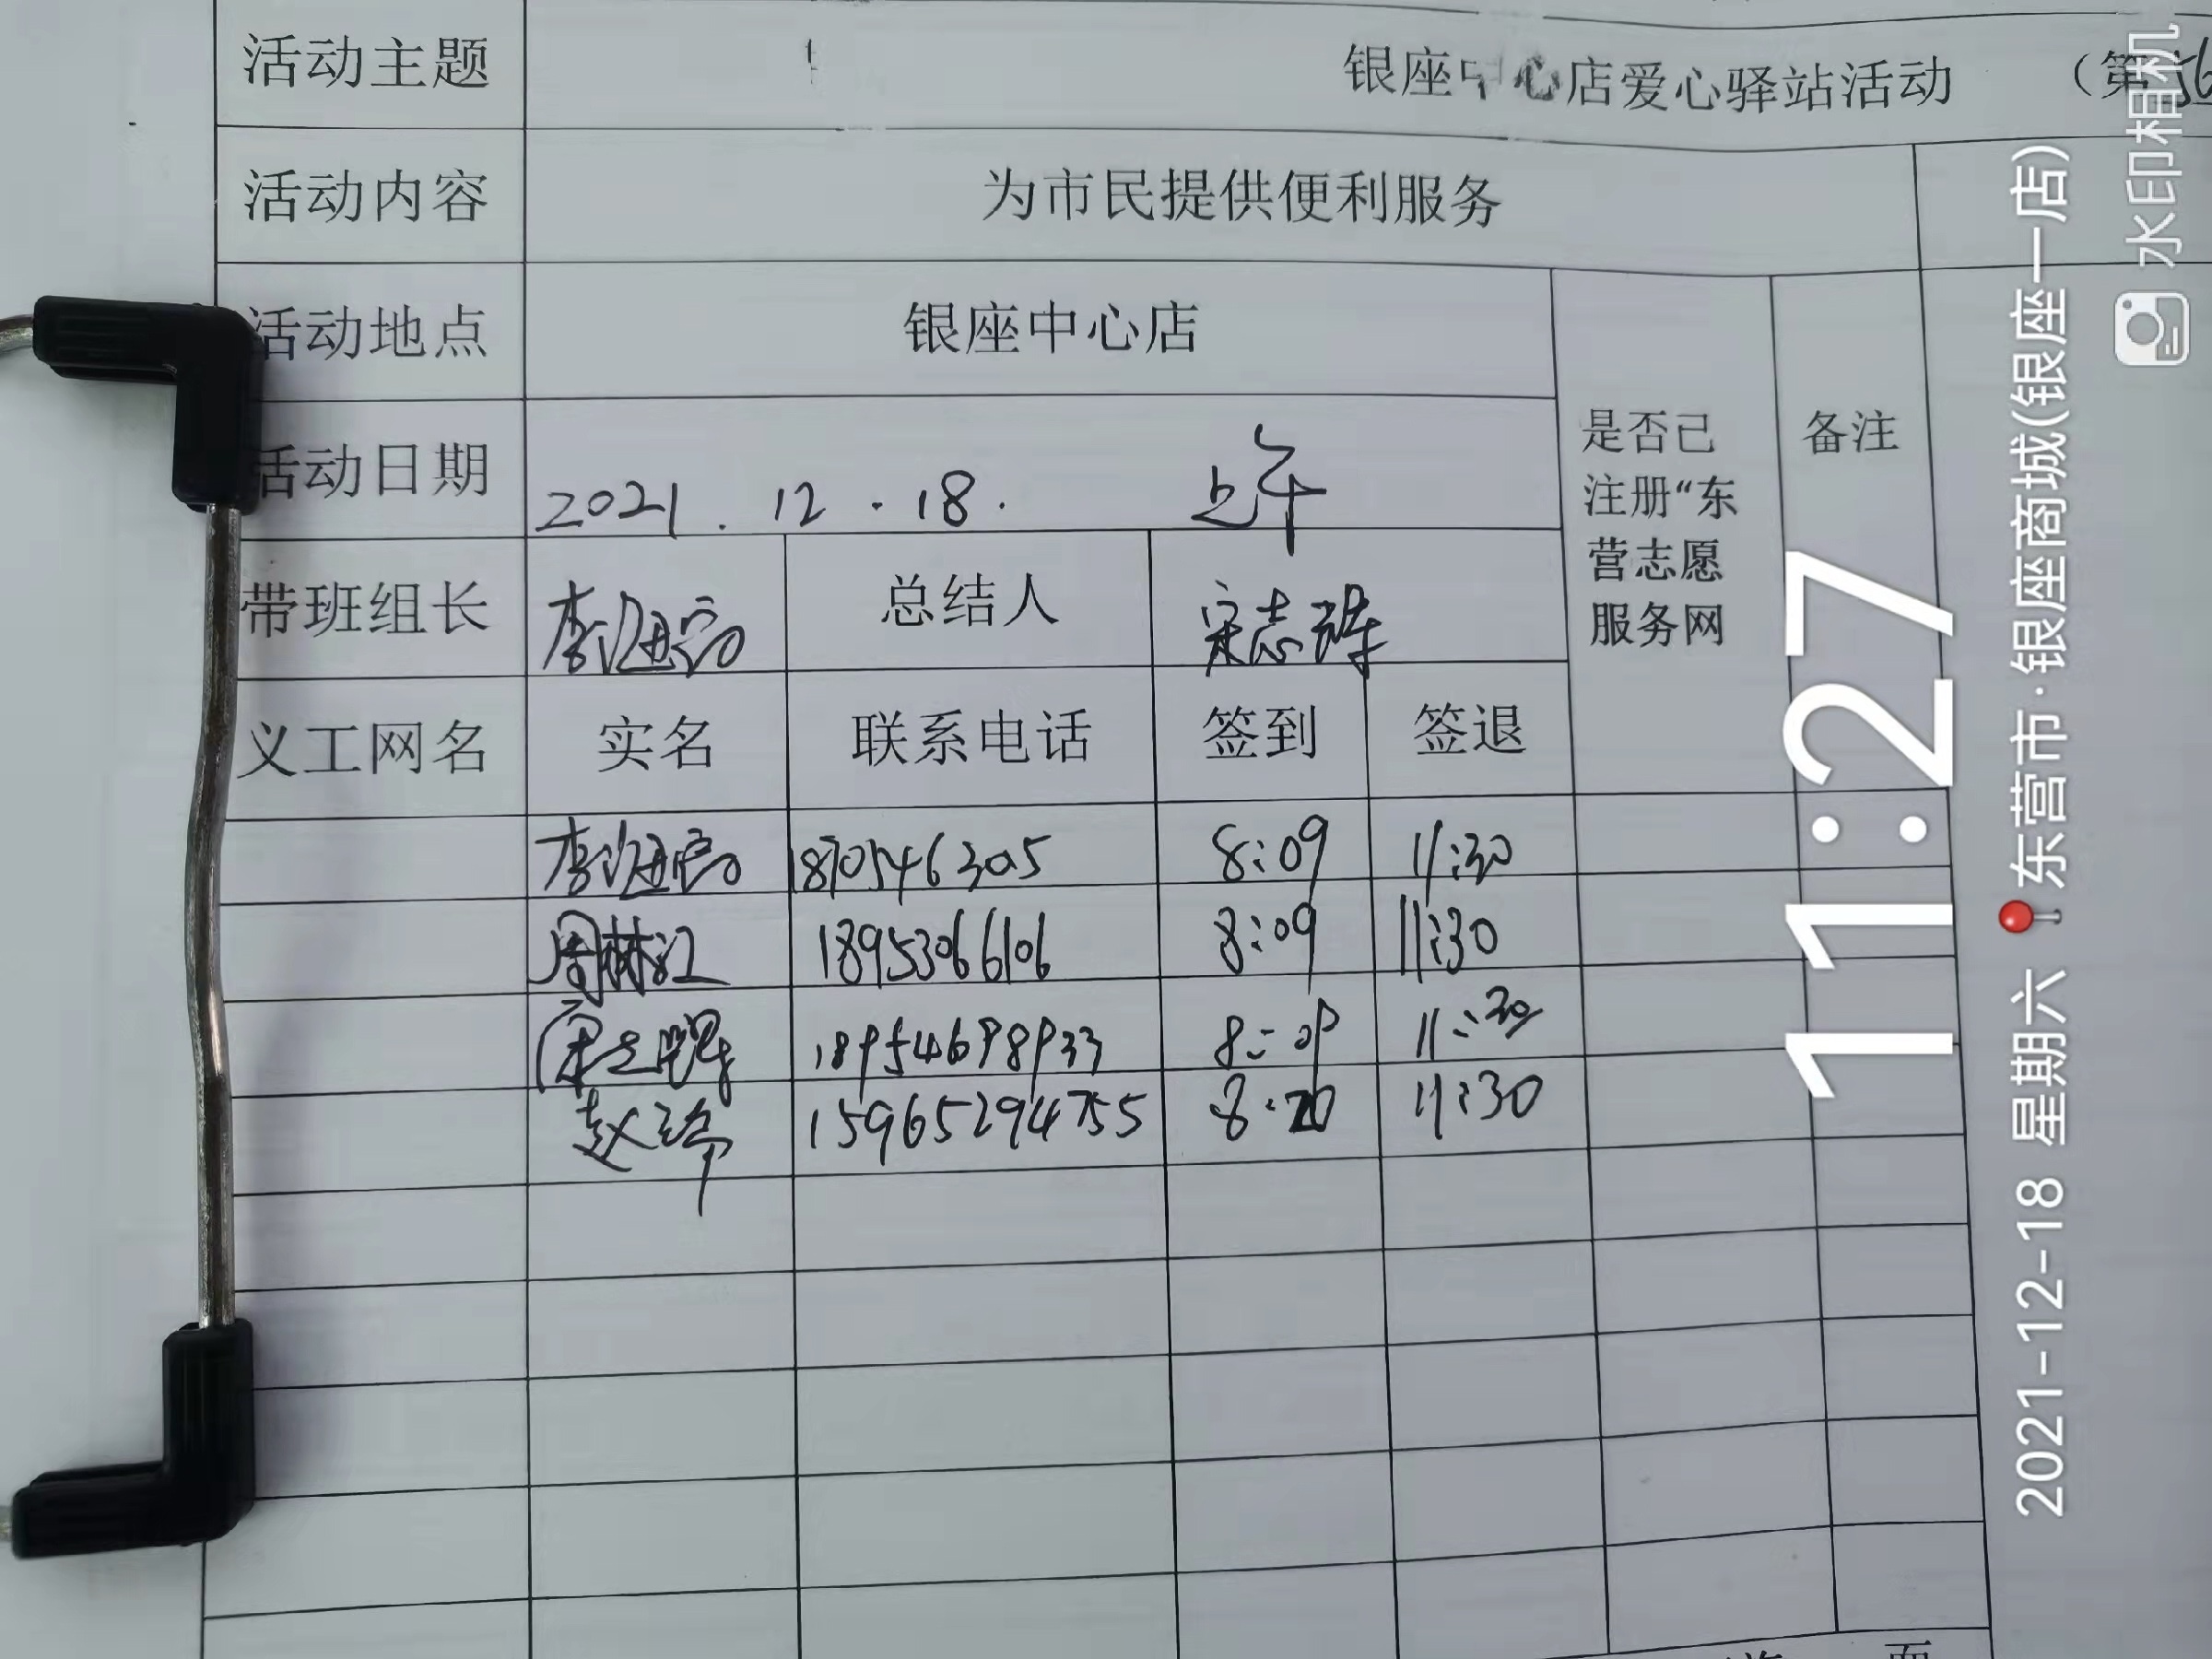 活动主题 银座中心店爱心驿站活动 （第56
活动内容 为市民提供便利服务
活动地点 银座中心店
活动日期 2021.12.18. 上午
是否已注册“东营志愿服务网
备注
带班组长 总结人
义工网名 实名 联系电话 签到 签退
8:09 11:30
周林江 18953066106 8:09 11:30
18954698933 8:09 11:30
赵 15965294755 8:20 11:30
11:27
2021-12-18 星期六 东营市·银座商城(银座一店)
水印相机